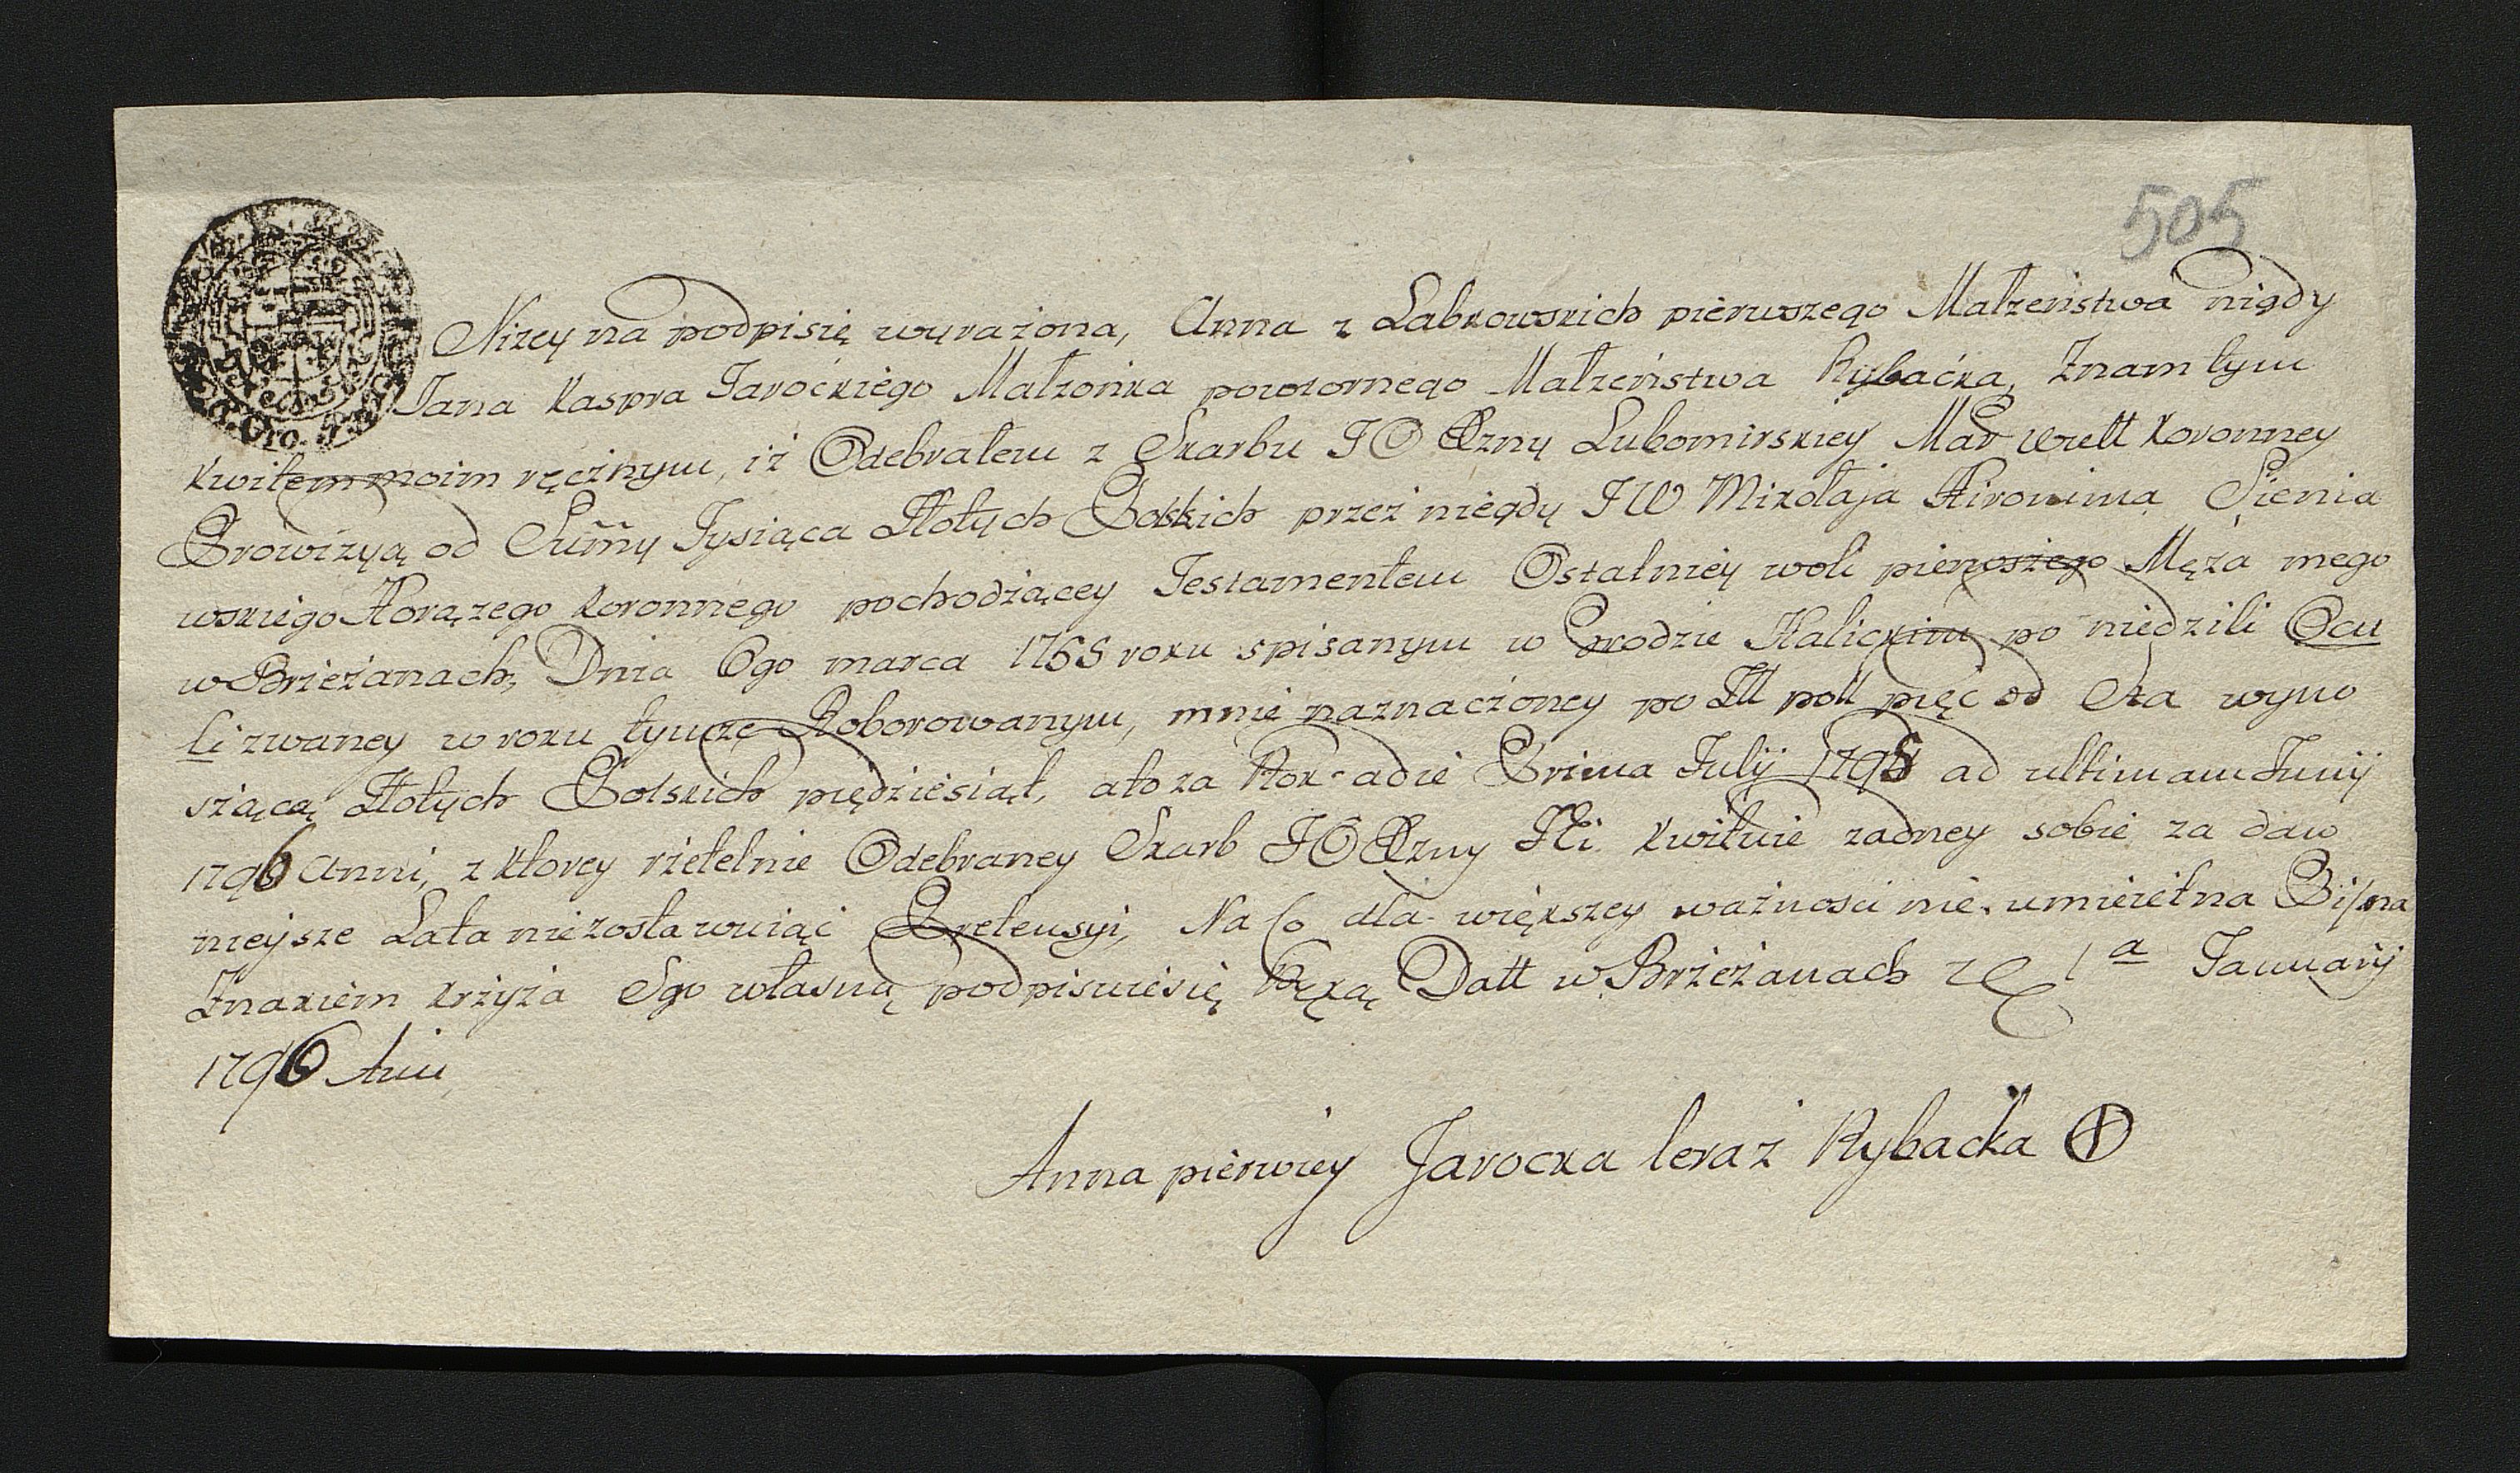 505
Nizey na podpisię wyrażona, Anna z Łabkowskich pierwszego Małzeństwa nigdy
Jana Kaspra Jarockiego Małzońka powtornego Małzeństwa Rybaćka, Znam tym
kwitem moim ręcżnym, iż Odebrałem z Skarbu JO Xzny Lubomirskiey Mar Wielt Koronney
Prowizyą od Sum̃y Tysiąca Złotych Polskich przeż niegdy JW Mikołaja Hironima Sienia
wskiego Horązego Koronnego pochodżącey Testamentem Ostatniey woli pierwszego Męża mego
w Brzeżanach, Dnia 6go marca 1768 roku spisanym w Grodzie Halickim po niedzili Ocu
li zwaney w roku tymze Roborowanym, mnie naznacżoney po Zll poll pięć od Sta wyno
sżącą Złotych Polskich piędżiesiąt, a to za Rok a die Prima Julij 1795 ad ultimam Junij
1796 Anni, z ktorey rżetelnie Odebraney Skarb JO Xzny Jći kwituie zadney sobie za daw
nieysze Lata niezostawuiąć Pretensyi, Na co dla większey ważnosci nie umieiętna Pisma
Znakiem krżyża Sgo własną podpisuie się Ręką Datt w Brżeżanach 1a Januarij
1796 Anii
Anna pierwiey Jarocka teraż Rybacka ⊕